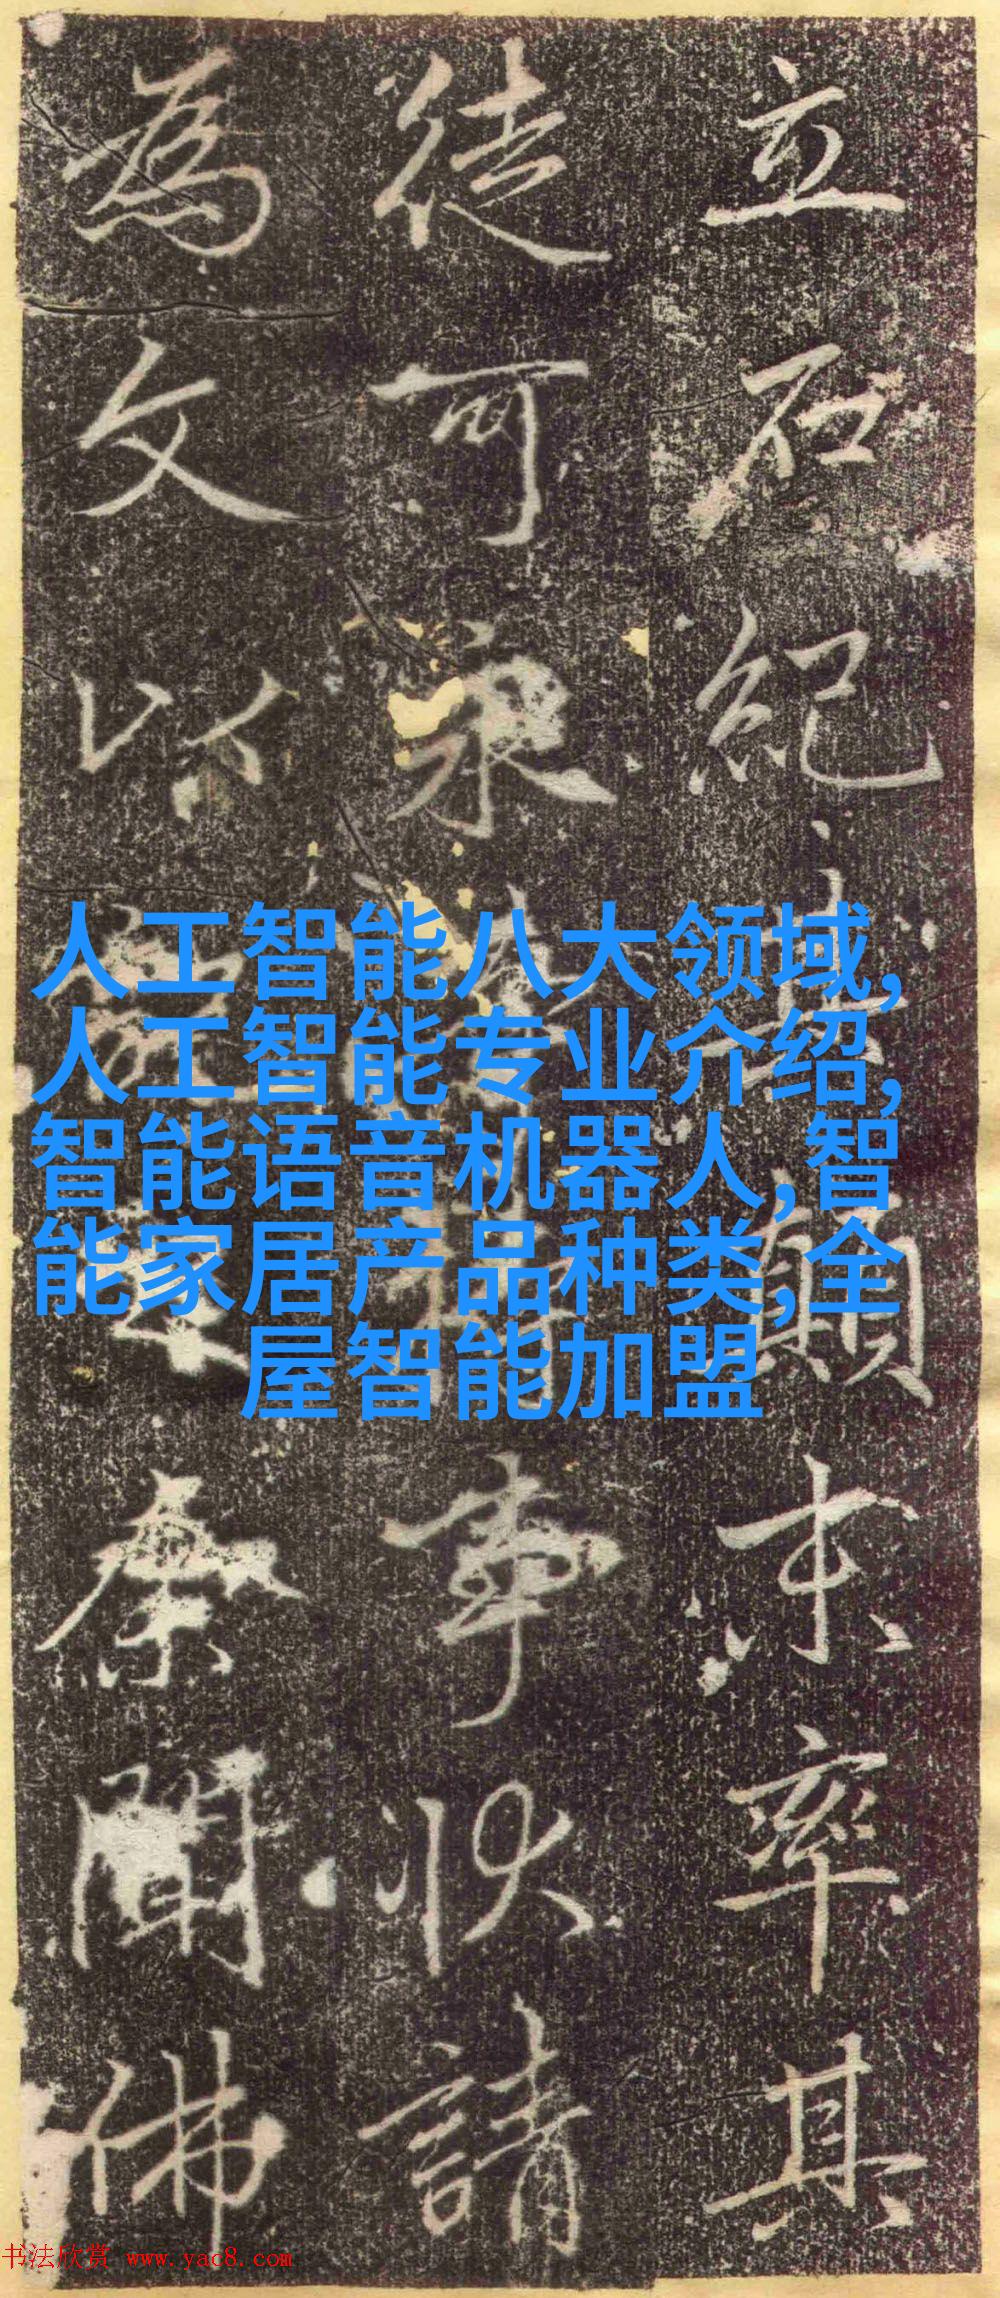 立石紀其顛末率其
徒可永事狀請
為文以聞佛
人工智能八大领域,
人工智能专业介绍,
智能语音机器人,智
能家居产品种类,全
屋智能加盟
书法欣赏 www.yac8.com